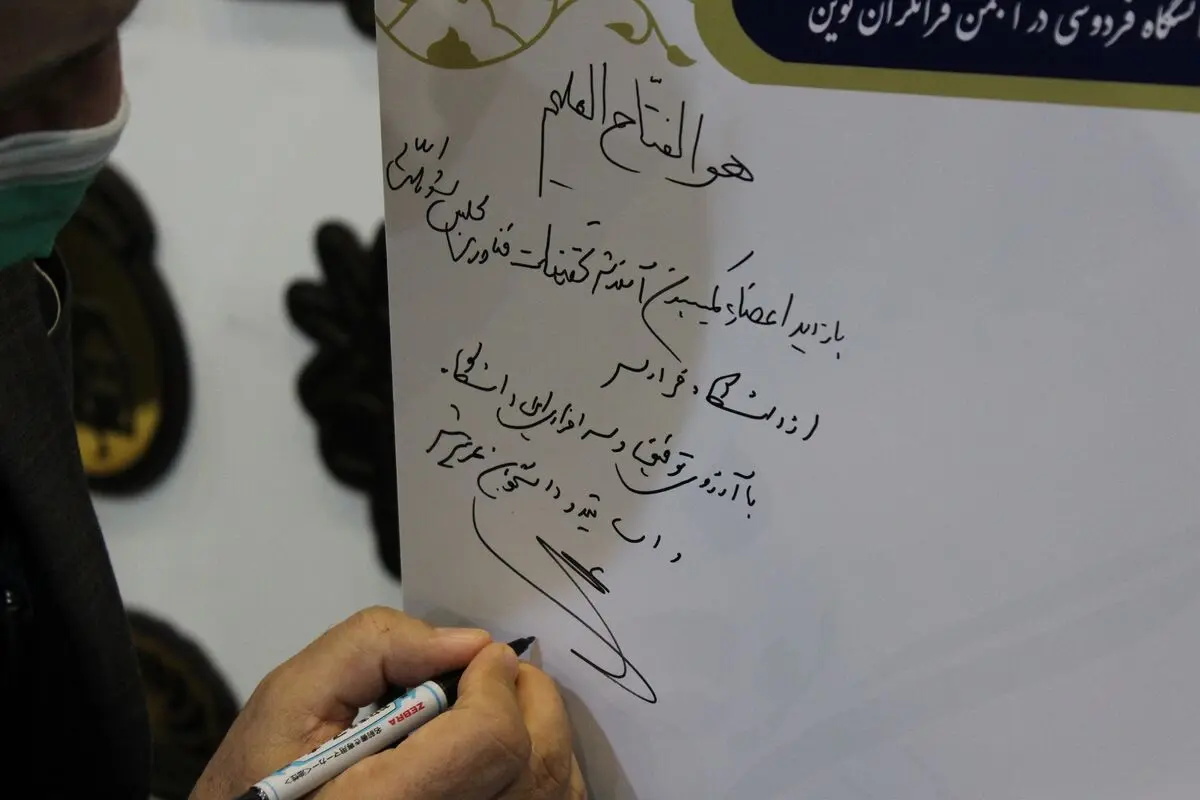 دانشگاه فردوسی در انجمن فرانگران نوین
هو الفتّاح العلیم
بازدید اعضاء کمیسیون آموزش تحقیقات فناوری مجلس شورای اسلامی
از دانشگاه فردوسی
با آرزوی توفیق برای دانشگاه
و اساتید و دانشجویان عزیز
ZEBRA